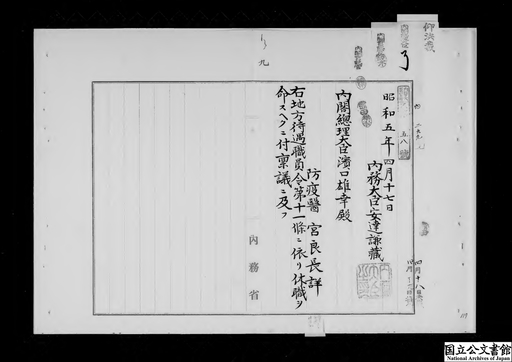 昭和五年四月十七日
內務大臣安達謙藏
內閣總理大臣濱口雄幸殿
防疫醫 宮良長詳
右地方待遇職員令第十一條ニ依リ休職ヲ
命スヘクニ付稟議ニ及フ
內務省
四月十八
国立公文書館
National Archives of Japan